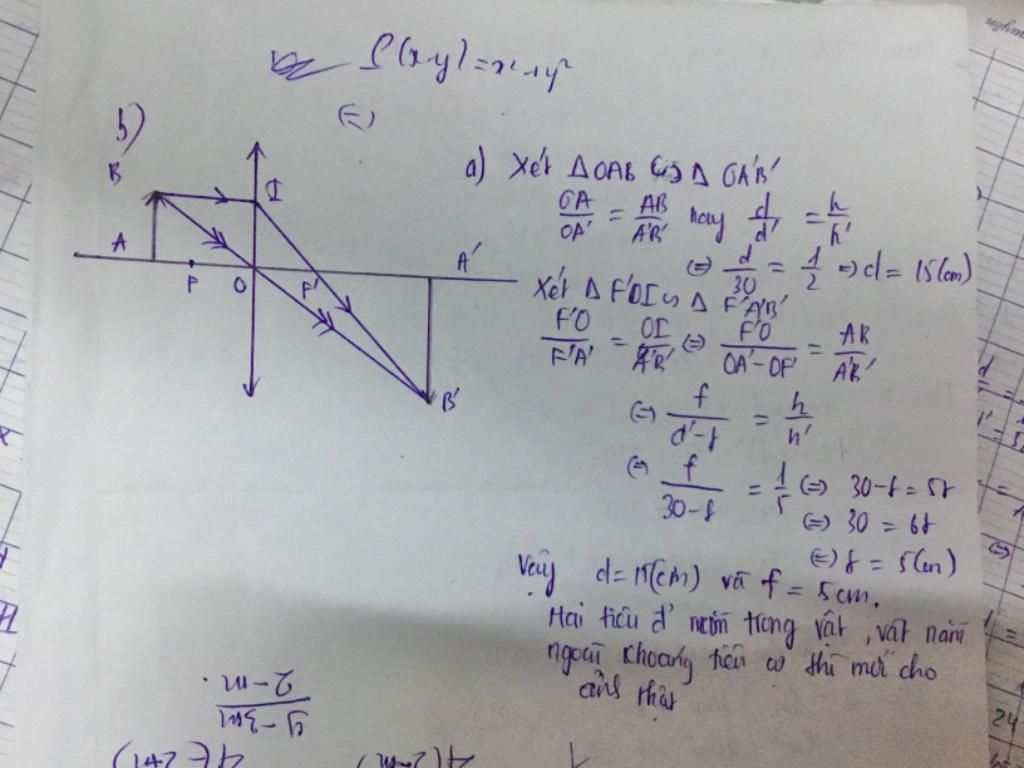 f(x-y) = x² + y²
(=)
b)
B
I
A
F
O
F'
A'
B'
a) Xét ΔOAB ∽ Δ OA'B'
OA/OA' = AB/A'B' hay d/d' = h/h'
(=) d/30 = 1/2 => d = 15(cm)
Xét Δ F'OI ∽ Δ F'A'B'
F'O/F'A' = OI/A'B' (=) F'O/OA'-OF' = AB/A'B'
(=) f/d'-f = h/h'
(=) f/30-f = 1/5 (=) 30-f = 5f
(=) 30 = 6f
(=) f = 5(cm)
Vậy d = 15(cm) và f = 5cm.
Hai tiêu đ' nằm trong vật, vật nằm
ngoài khoảng tiêu cự thì mới cho
ảnh thật
5-3m/2-m